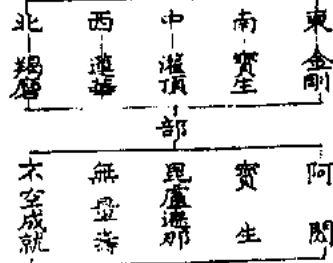 東 金剛
南 寶生
中 灌頂
西 蓮華
北 羯磨
部
阿閦
寶生
毘盧遮那
無量壽
不空成就